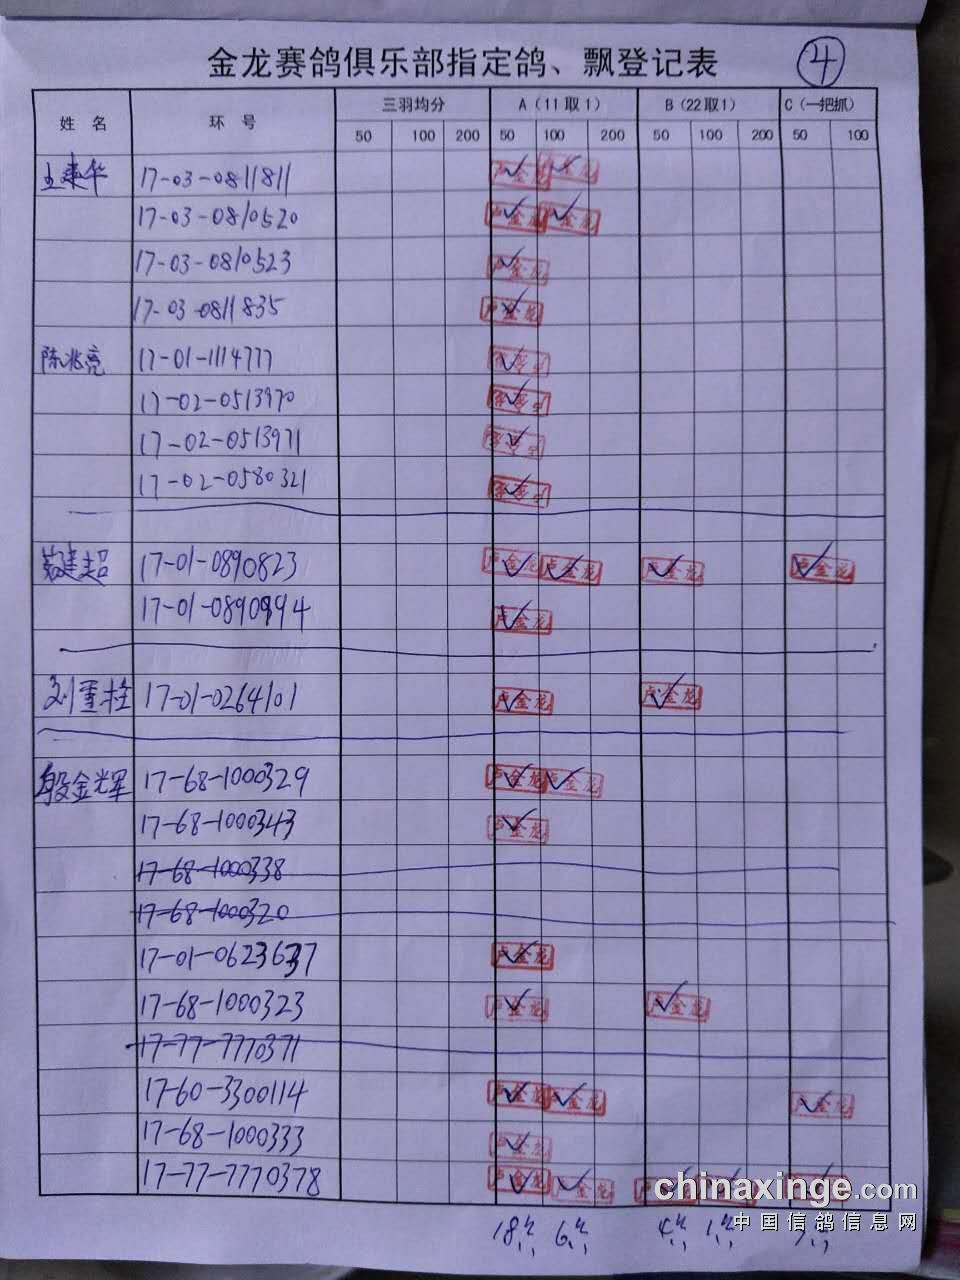 金龙赛鸽俱乐部指定鸽、飘登记表 4
姓 名 环 号 三羽均分 A(11取1) B(22取1) C(一把抓)
50 100 200 50 100 200 50 100 200 50 100
17-03-0811811
17-03-0810520
17-03-0810523
17-03-0811835
陈兆亮 17-01-1114777
17-02-0513970
17-02-0513971
17-02-0580321
17-01-0890823 卢金龙 卢金龙 卢金龙 卢金龙
17-01-0890994 卢金龙
17-01-0264101 卢金龙 卢金龙
殷金辉 17-68-1000329 卢金龙 卢金龙
17-68-1000343 卢金龙
17-68-1000338
17-68-1000320
17-01-0623637 卢金龙
17-68-1000323 卢金龙 卢金龙
17-77-7770371
17-60-3300114 卢金龙 卢金龙 卢金龙
17-68-1000333 卢金龙
17-77-7770378 卢金龙 卢金龙
chinaxinge.com
中国信鸽信息网